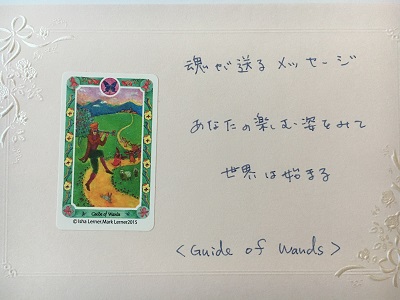 魂が送るメッセージ
あなたの楽しむ姿をみて
世界は始まる
<Guide of Wands>
Guide of Wands
©Isha Lerner,Mark Lerner2015